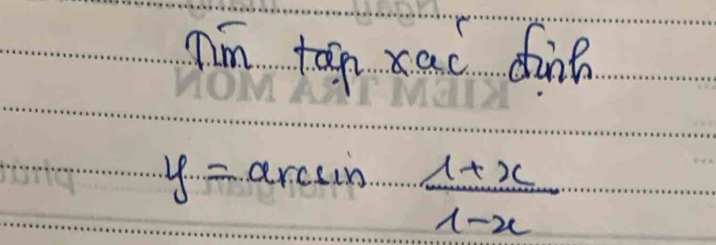 Tìm tập xác định
y = arcsin \frac{1+x}{1-x}